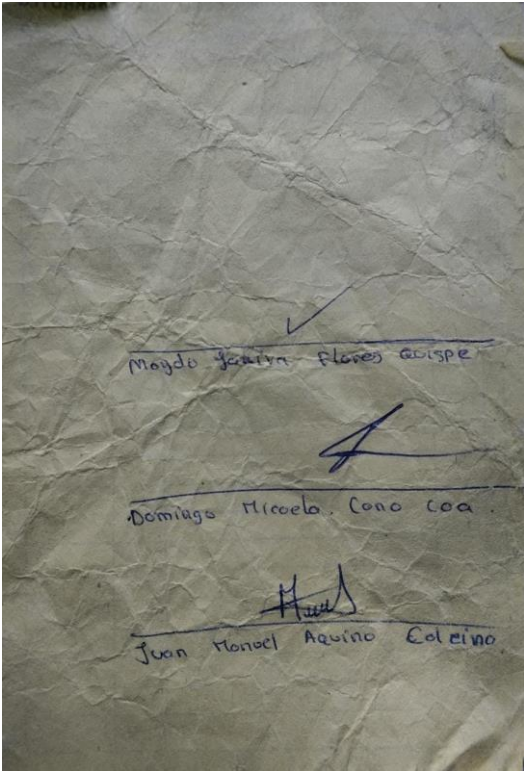 Maydo Janira Flores Quispe
Domingo Micaela. Cano Coa.
Juan Manuel Aquino